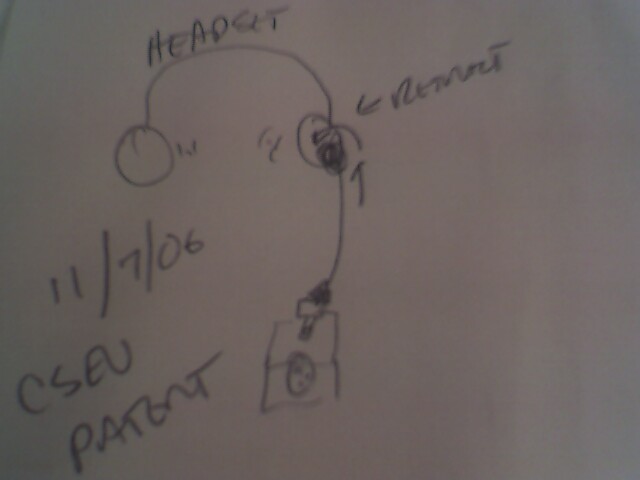 HEADSET
← REMOTE
11/7/06
CSEV
PATENT